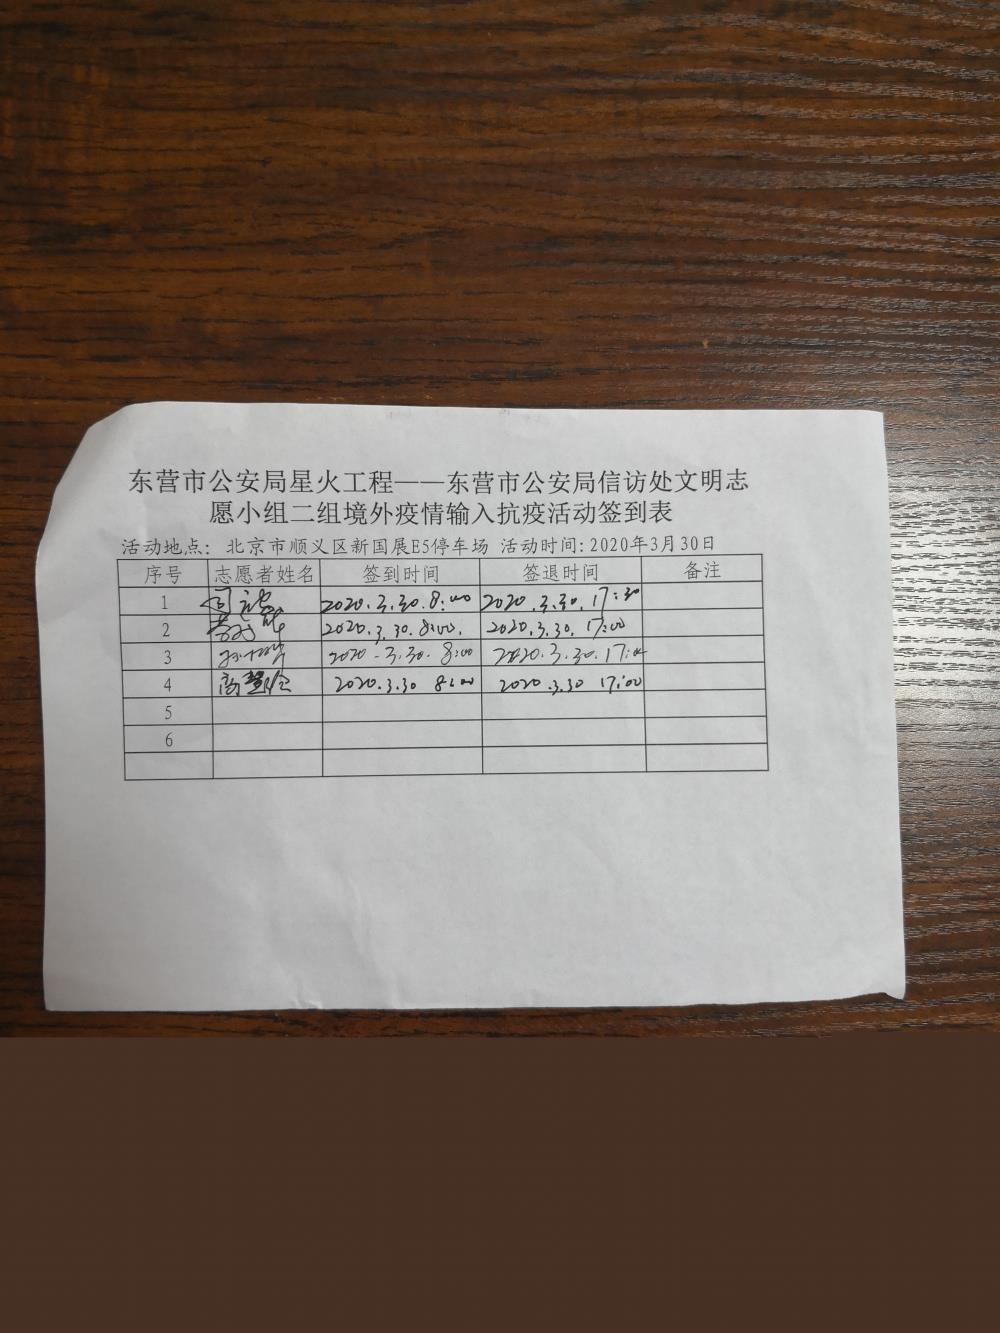 东营市公安局星火工程——东营市公安局信访处文明志
愿小组二组境外疫情输入抗疫活动签到表
活动地点: 北京市顺义区新国展E5停车场 活动时间: 2020年3月30日
序号 志愿者姓名 签到时间 签退时间 备注
1 2020.3.30.8:00 2020.3.30.17:30
2 2020.3.30.8:00. 2020.3.30.17:00
3 2020.3.30.8:00 2020.3.30.17:00
4 2020.3.30 8:00 2020.3.30 17:00
5
6